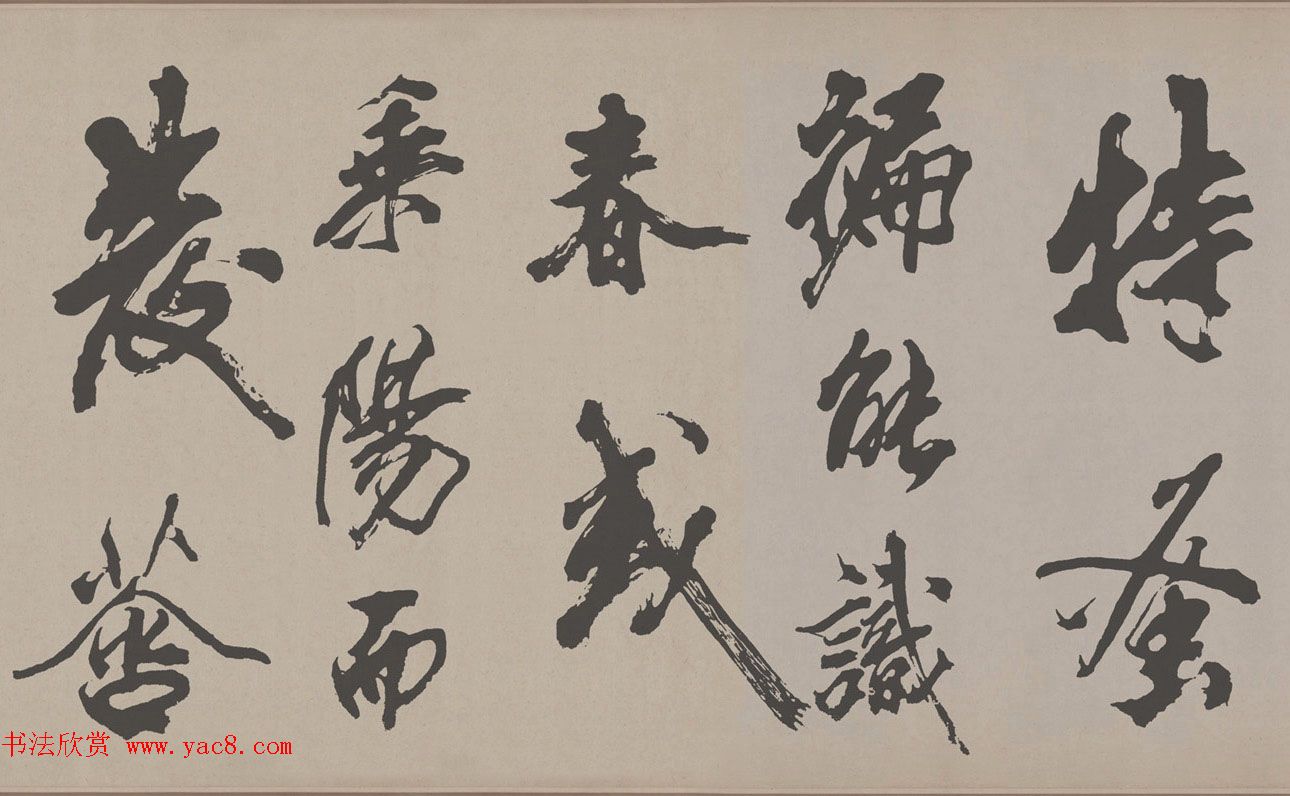 特蚤
徧能識
春或
乘陽而
發
书法欣赏 www.yac8.com